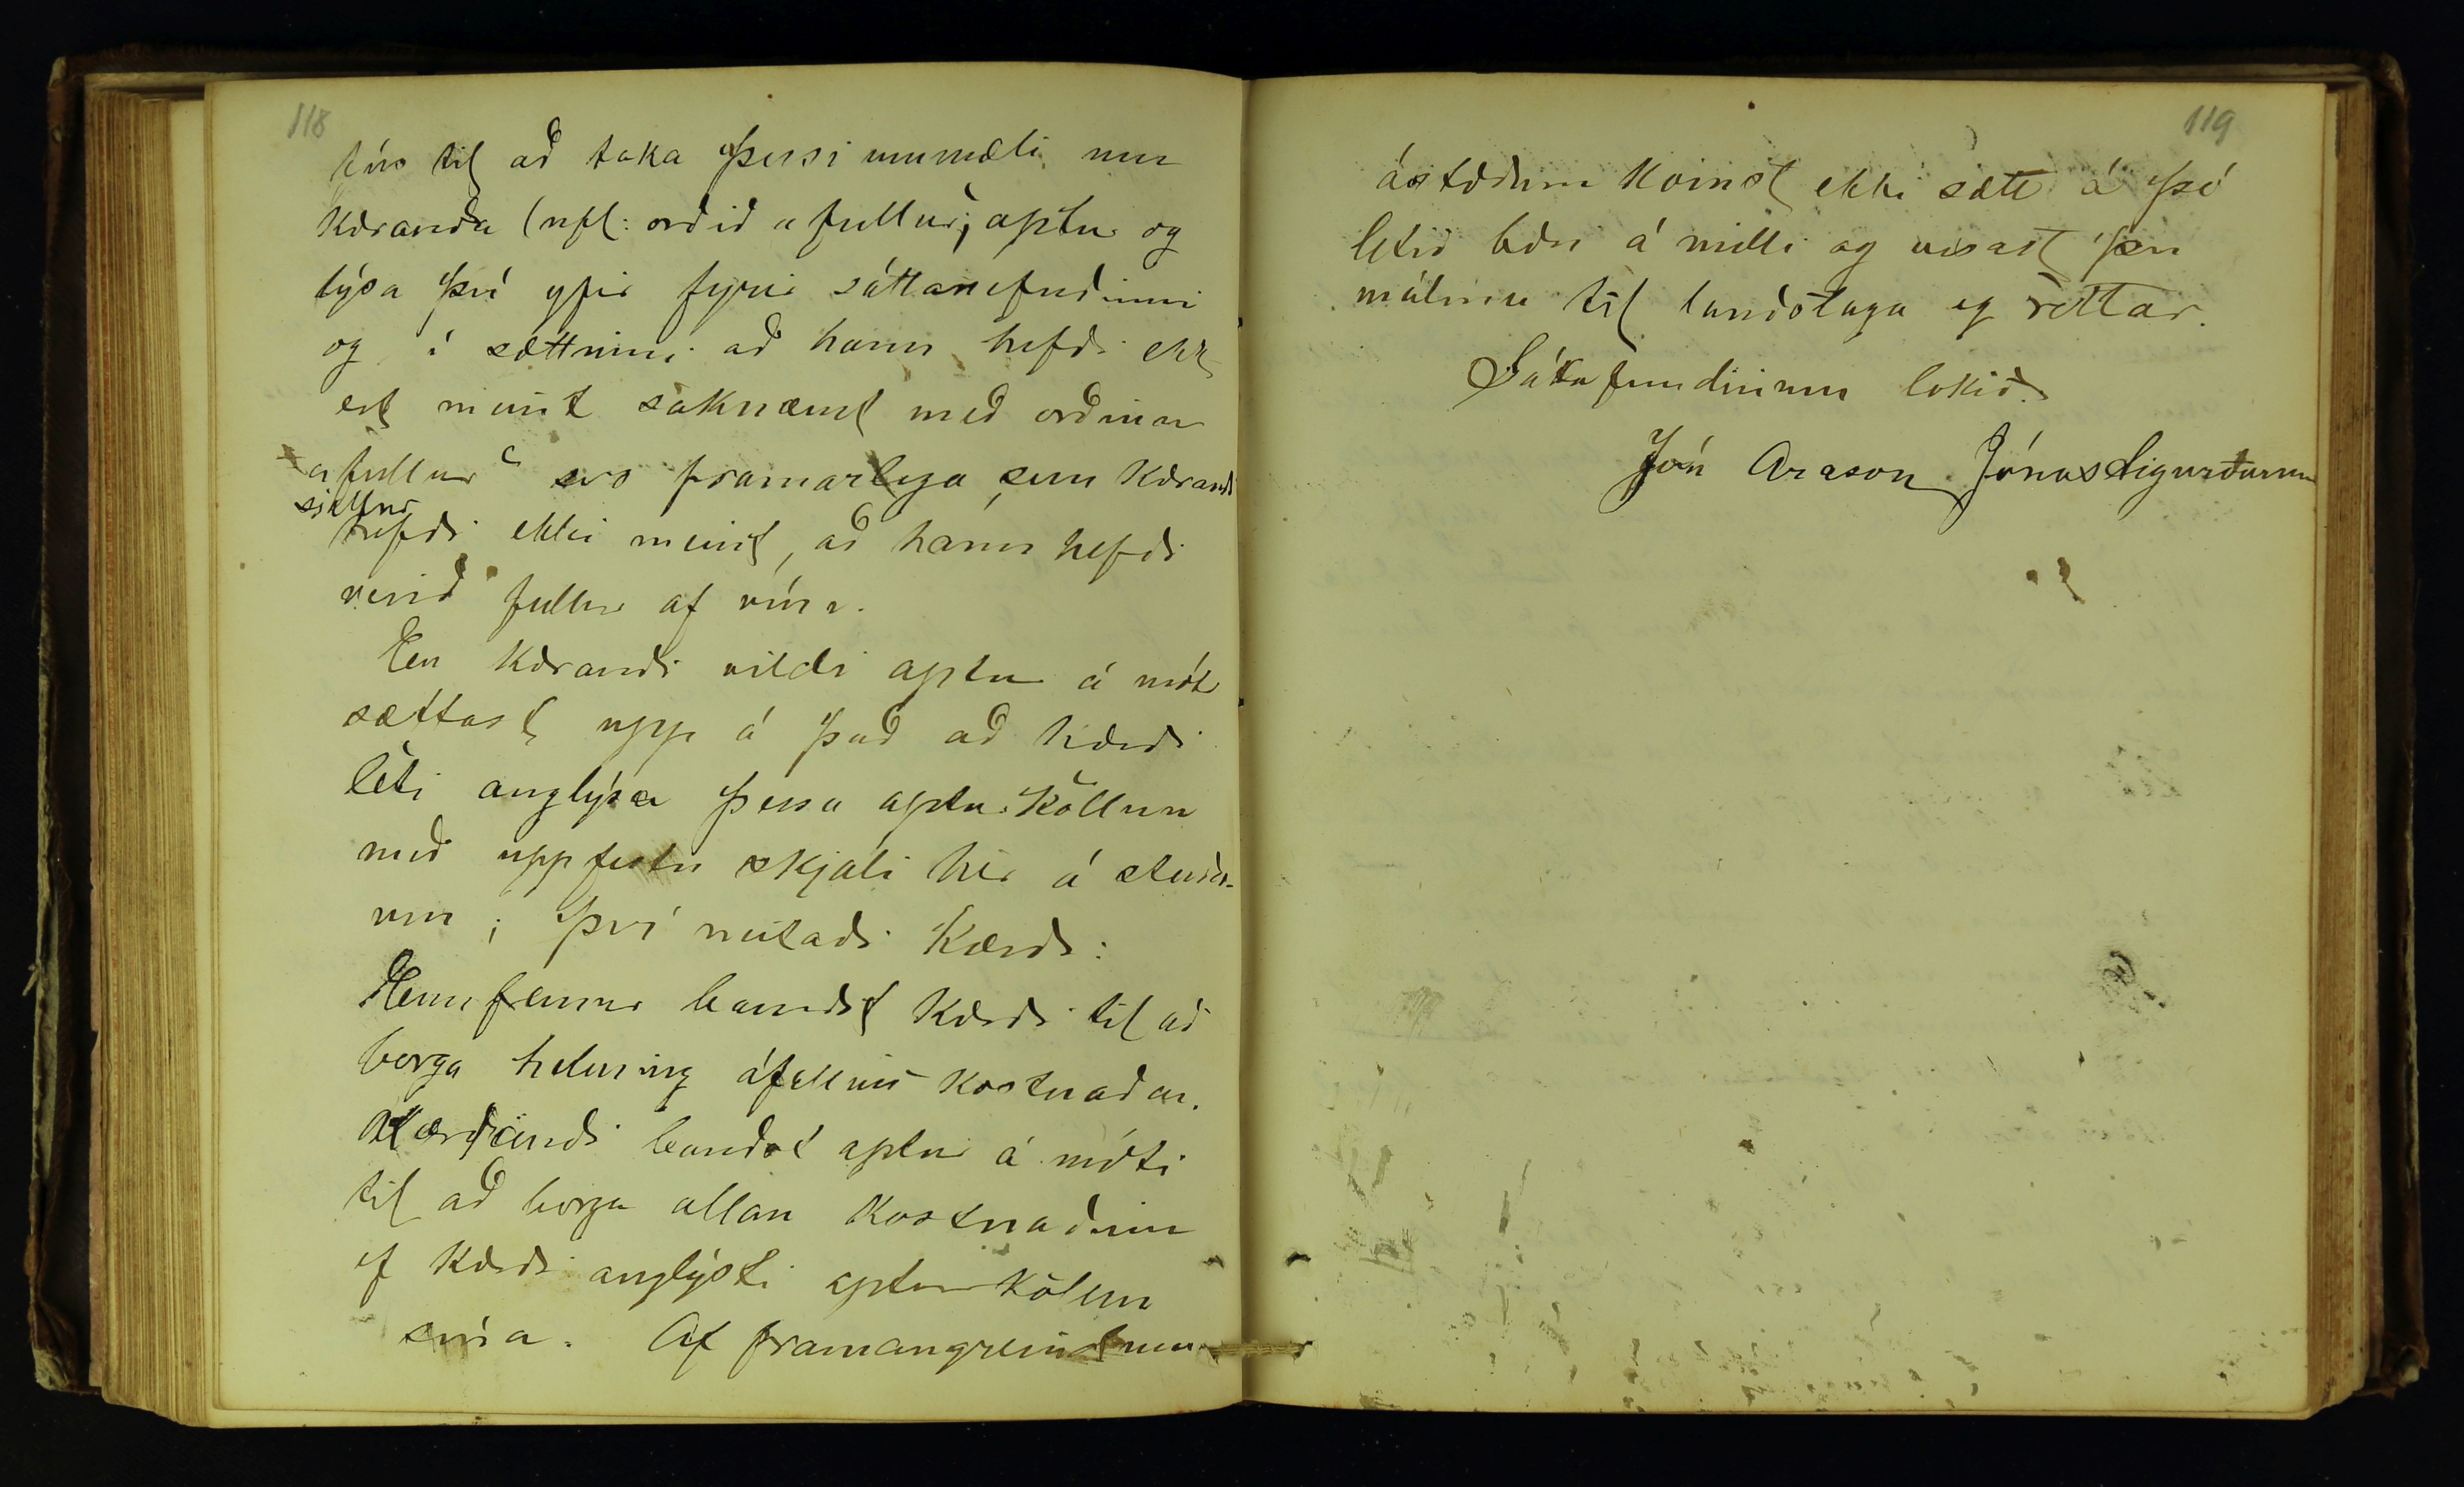 118
fús til að taka þessi ummæli um
kæranda (nfl: orðið "fullur", aptur og
lýsa því yfir fyrir sáttanefndinni
og í sættinni að hann hefði ekk
ert meint saknæmt með orðinu
"fullur" svo framarlega sem kærandi
sjálfur
hefði ekki meint, að hann hefði
verið fullur af víni.
En kærandi vildi aptur á mót
sættast upp á það að kærði
léti auglýsa þessa aptur köllun
með uppfestu skjali hér á staðn-
um; því neitaði kærði:
Hennfremur bauðst kærði til að
borga helming áfallins kostnaðar.
Kærandi bauðst aptur á móti
til að borga allan kostnaðinn
ef kærði auglýsti aptur köllun
sína. Af framangreindum
119
ástæðum komst ekki sætt á þó
leitið bæri á milli og vísast þessu
málinu til landslaga og réttar.
Sáttafundinum lokið.
Jón Arason Jónas Sigurðsson